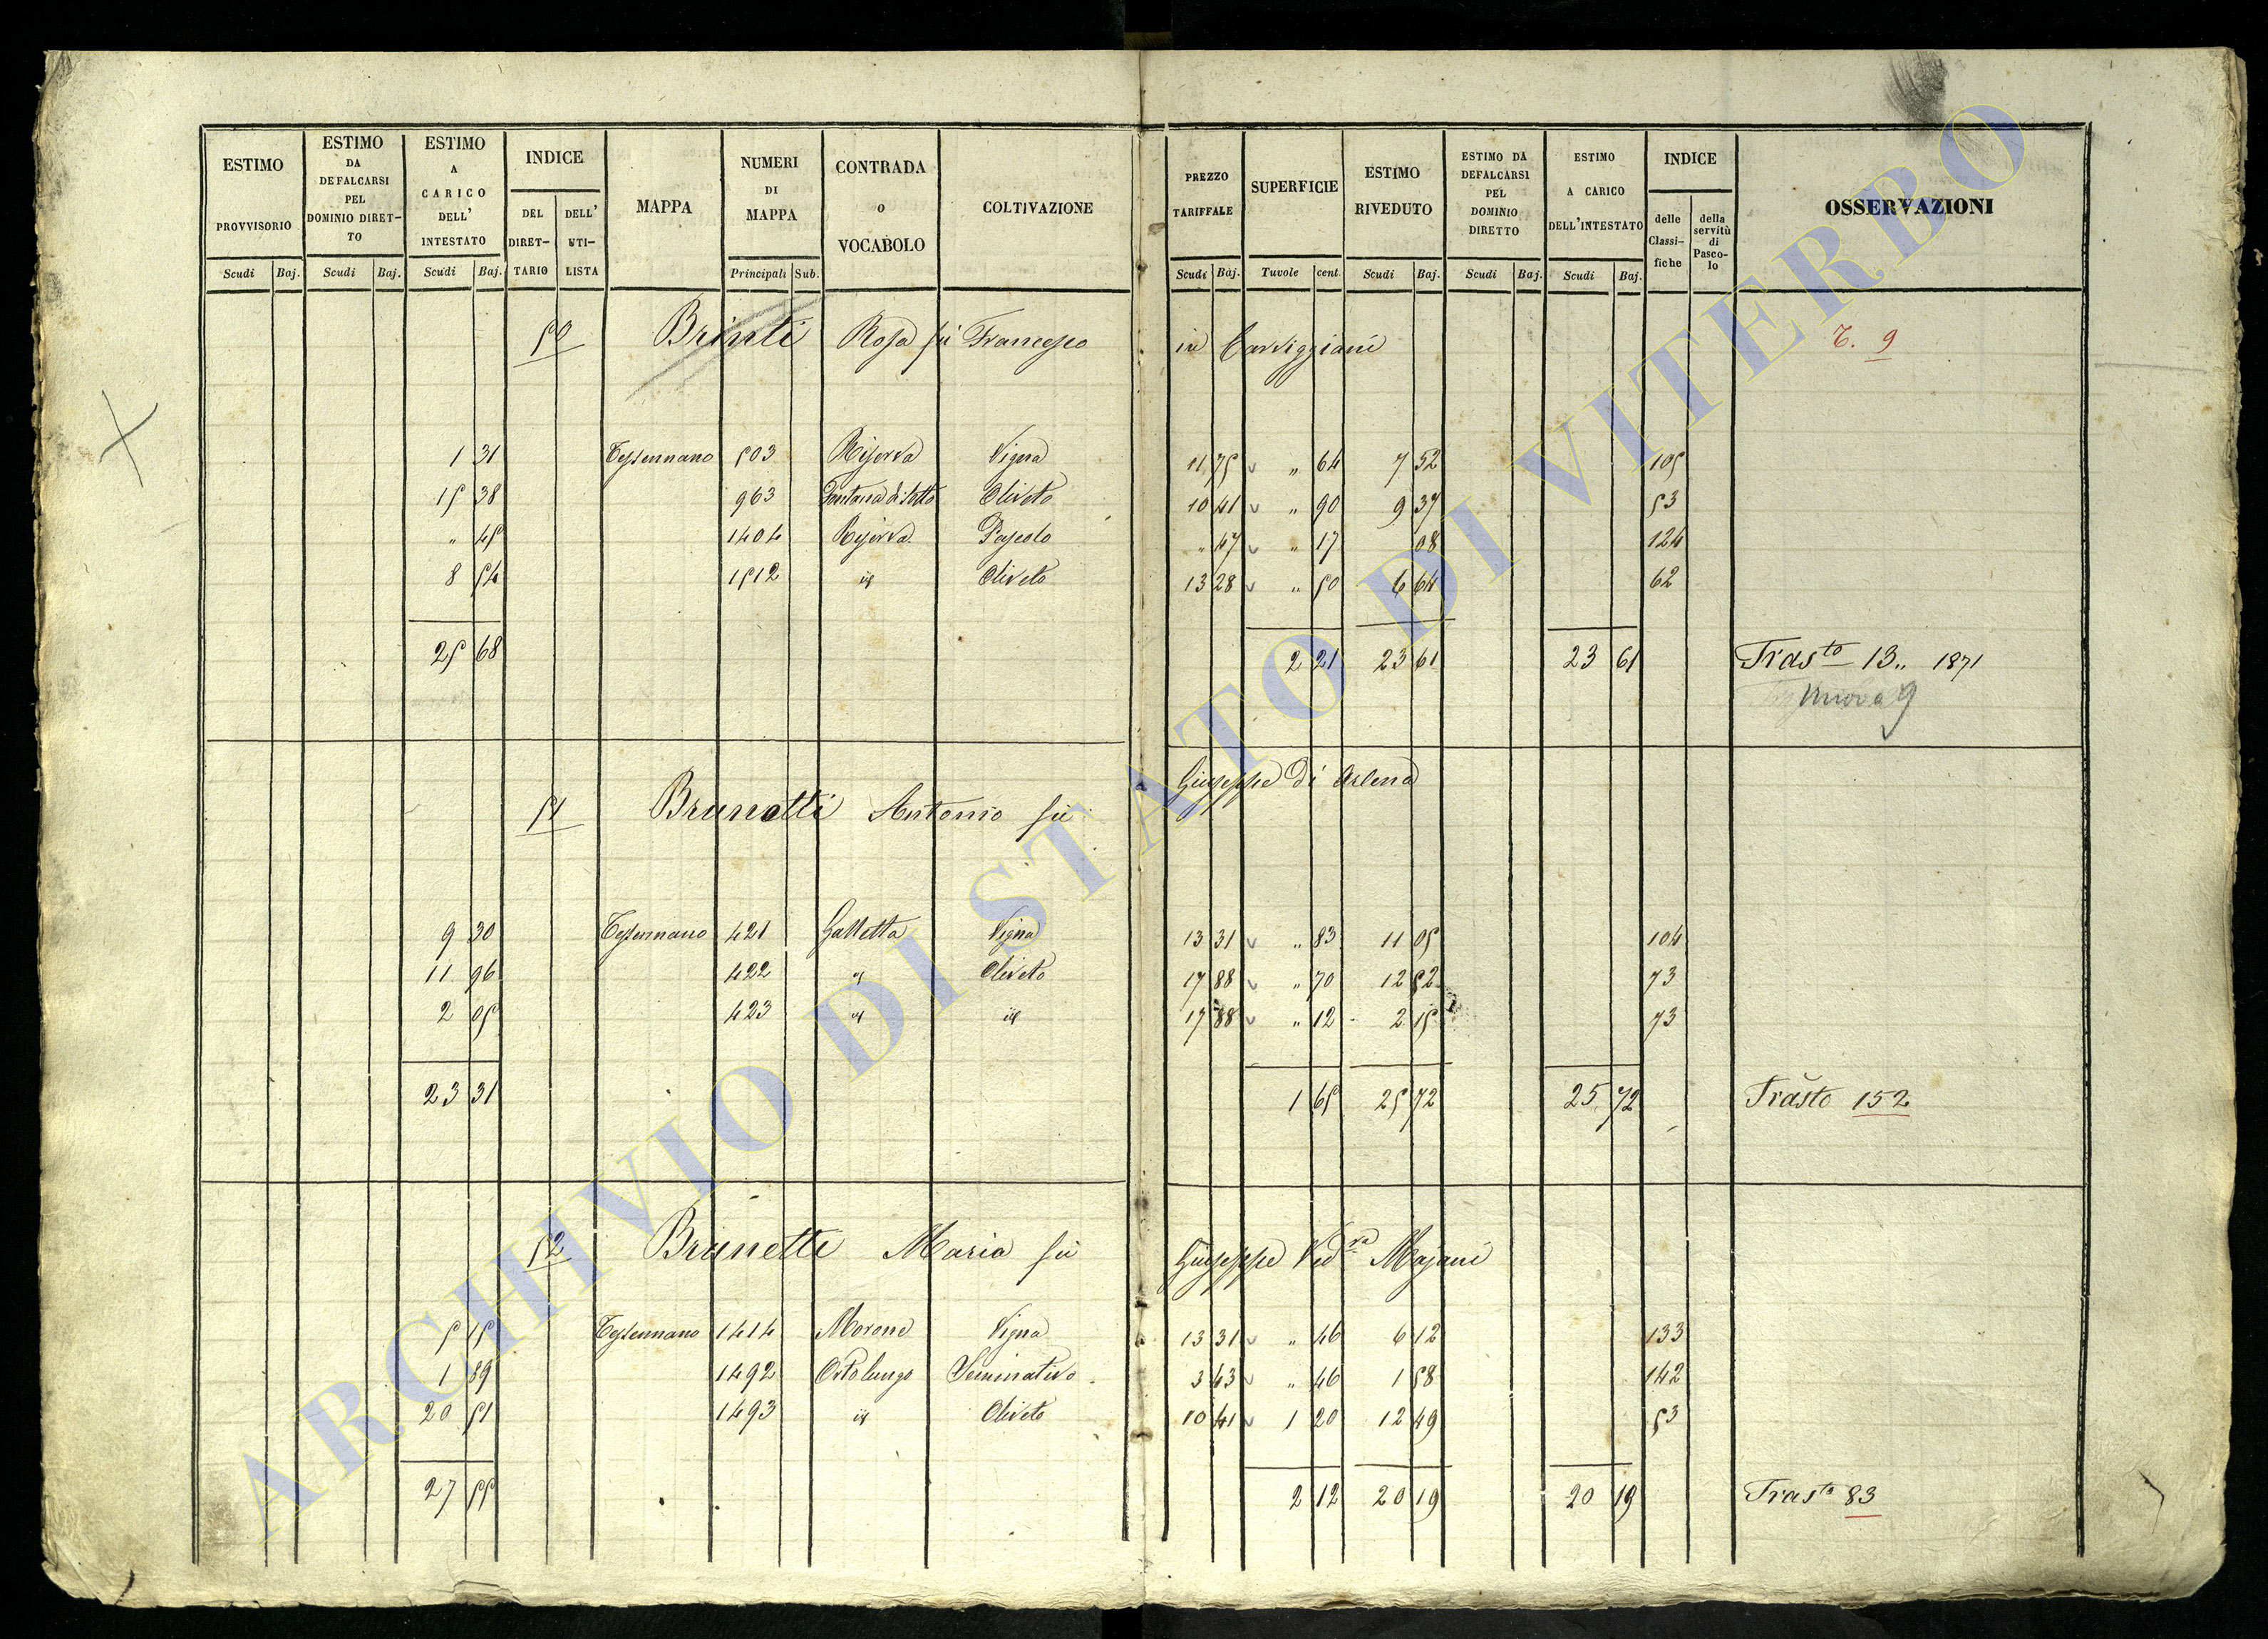 ESTIMO PROVVISORIO Scudi Baj.
ESTIMO DA DEFALCARSI PEL DOMINIO DIRET-TO Scudi Baj.
ESTIMO A CARICO DELL' INTESTATO Scudi Baj.
INDICE DEL DIRET-TARIO DELL' UTI-LISTA
MAPPA
NUMERI DI MAPPA Principali Sub.
CONTRADA o VOCABOLO
COLTIVAZIONE
PREZZO TARIFFALE Scudi Baj.
SUPERFICIE Tavole cent.
ESTIMO RIVEDUTO Scudi Baj.
ESTIMO DA DEFALCARSI PEL DOMINIO DIRETTO Scudi Baj.
ESTIMO A CARICO DELL'INTESTATO Scudi Baj.
INDICE delle Classi-fiche della servitù di Pasco-lo
OSSERVAZIONI
50 Brinti Rosa fù Francesco in 7. 9
1 31 Tessennano 503 Riserva Vigna 11 75 " 64 7 52 105
15 38 963 Fontana di Sotto Oliveto 10 41 " 90 9 37 53
" 45 1404 Riserva Pascolo " 47 " 17 08 124
8 54 1512 id Oliveto 13 28 " 50 6 64 62
25 68 2 21 23 61 23 61 Trasto 13 " 1871
nuova 9
51 Brunetti Antonio fù Giuseppe di Arlena
9 30 Tessennano 421 Galletta Vigna 13 31 " 83 11 05 104
11 96 422 id Oliveto 17 88 " 70 12 52 73
2 05 423 id id 17 88 " 12 2 15 73
23 31 1 65 25 72 25 72 Trasto 152
52 Brunetti Maria fù Giuseppe Ved.va Majani
5 15 Tessennano 1414 Morone Vigna 13 31 " 46 6 12 133
1 89 1492 Ortolungo Seminativo 3 43 " 46 1 58 142
20 51 1493 id Oliveto 10 41 1 20 12 49 53
27 55 2 12 20 19 20 19 Trasto 83
ARCHIVIO DI STATO DI VITERBO